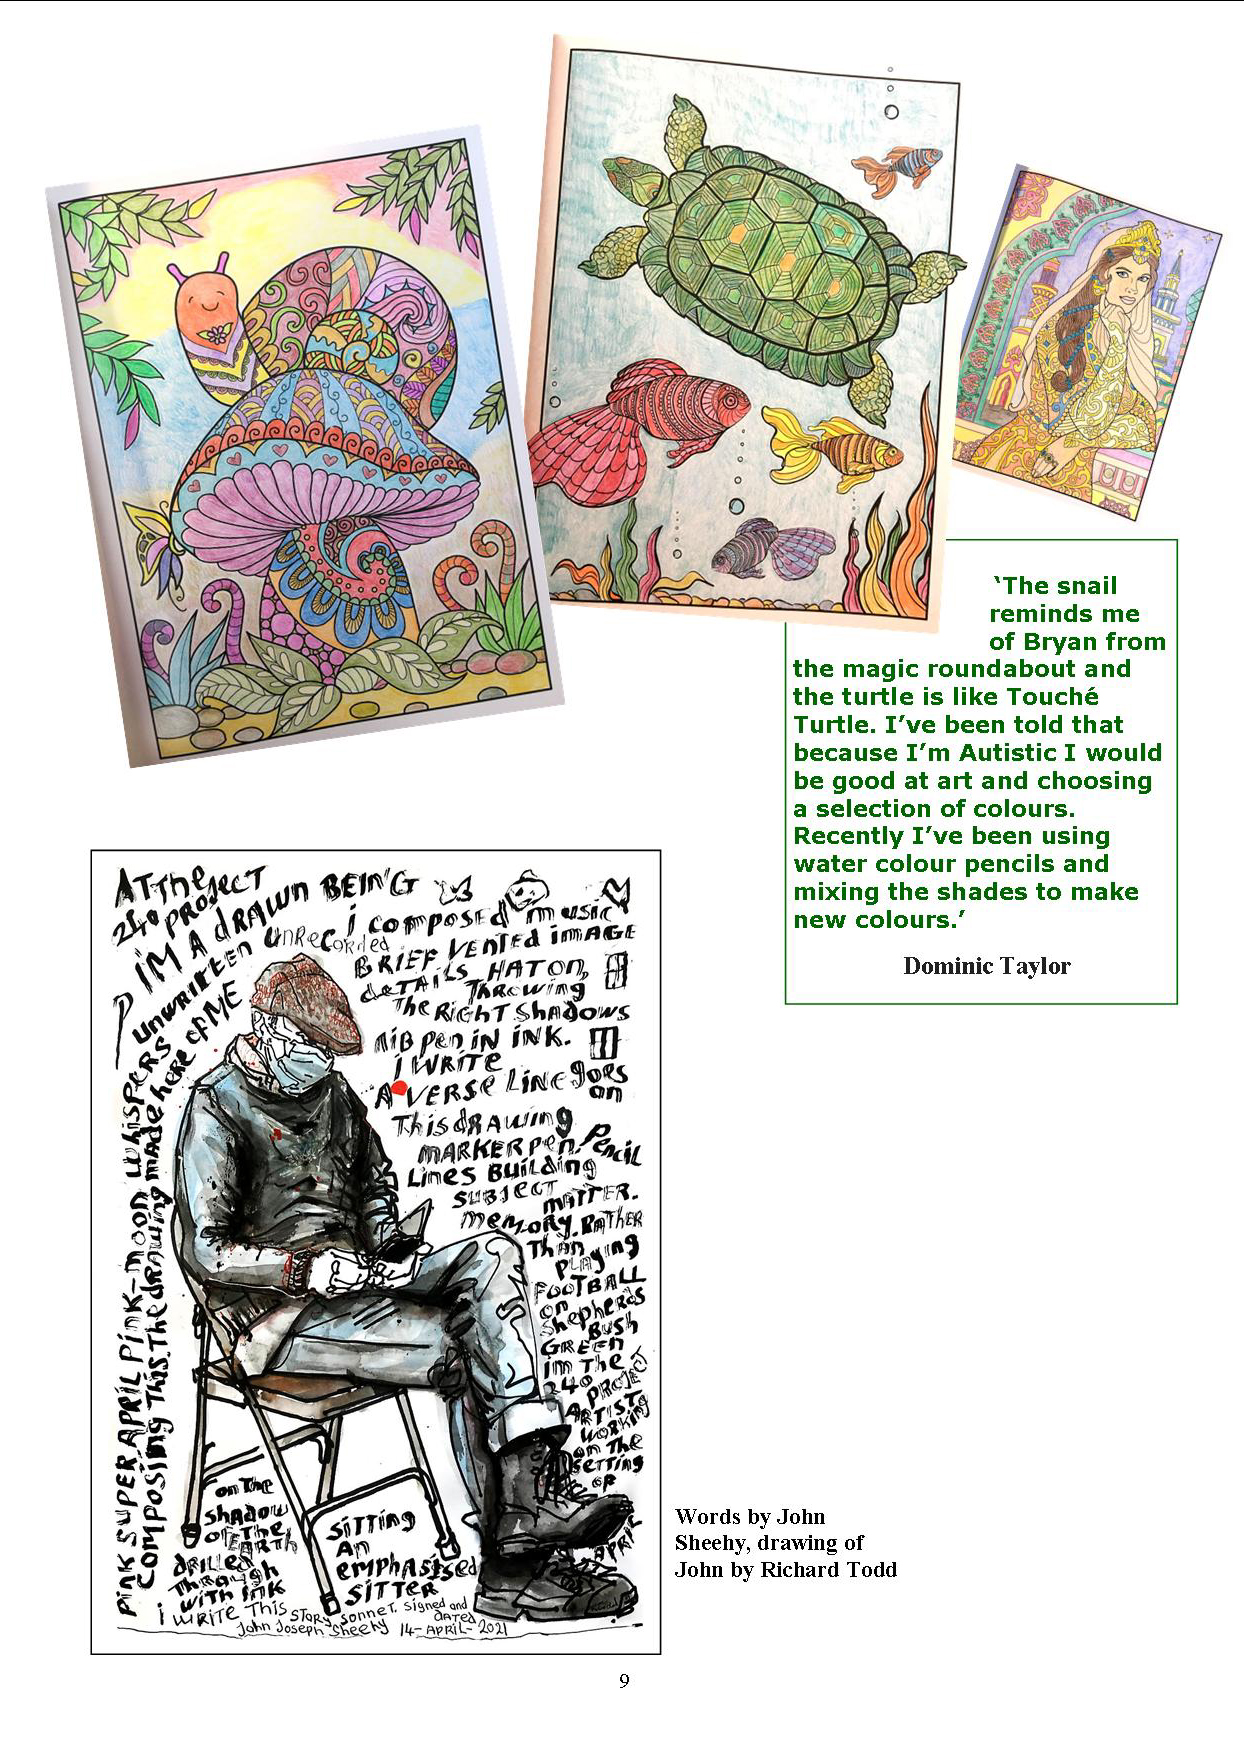 ‘The snail
reminds me
of Bryan from
the magic roundabout and
the turtle is like Touché
Turtle. I’ve been told that
because I’m Autistic I would
be good at art and choosing
a selection of colours.
Recently I’ve been using
water colour pencils and
mixing the shades to make
new colours.’
Dominic Taylor
AT The
240 PROJECT
I'M A dRAWN BEING
UNWRITTEN UNRECORDED
i COMPOSED MUSIC
BRIEF VENTED IMAGE
dETAILS HAT ON,
THROWING
The RIGHT SHADOWS
NIB PEN IN INK.
i WRITE
A VERSE LINE goes
on
This dRAWING
MARKER PEN. PENCIL
LINES BUILDING
SUBJECT
MATTER.
MEMORY. RATHER
THAN PLAYING
FOOTBALL
ON
Shepherds
BUSH
GREEN
im The
240 PROJECT
ARTIST
WORKING
on The
SETTING
OF
APRIL
PINK SUPER APRIL PINK-MOON WHISPERS
COMPOSING THIS. The dRAWING MADE HERE OF ME
on The
Shadow
OF The
EARTH
dRILLEd
Through
WITH INK
SITTING
AN
EMPHASISED
SITTER
i WRITE THIS STORY SONNET. Signed and
DATED
John Joseph Sheehy 14-APRIL-2021
Words by John
Sheehy, drawing of
John by Richard Todd
9